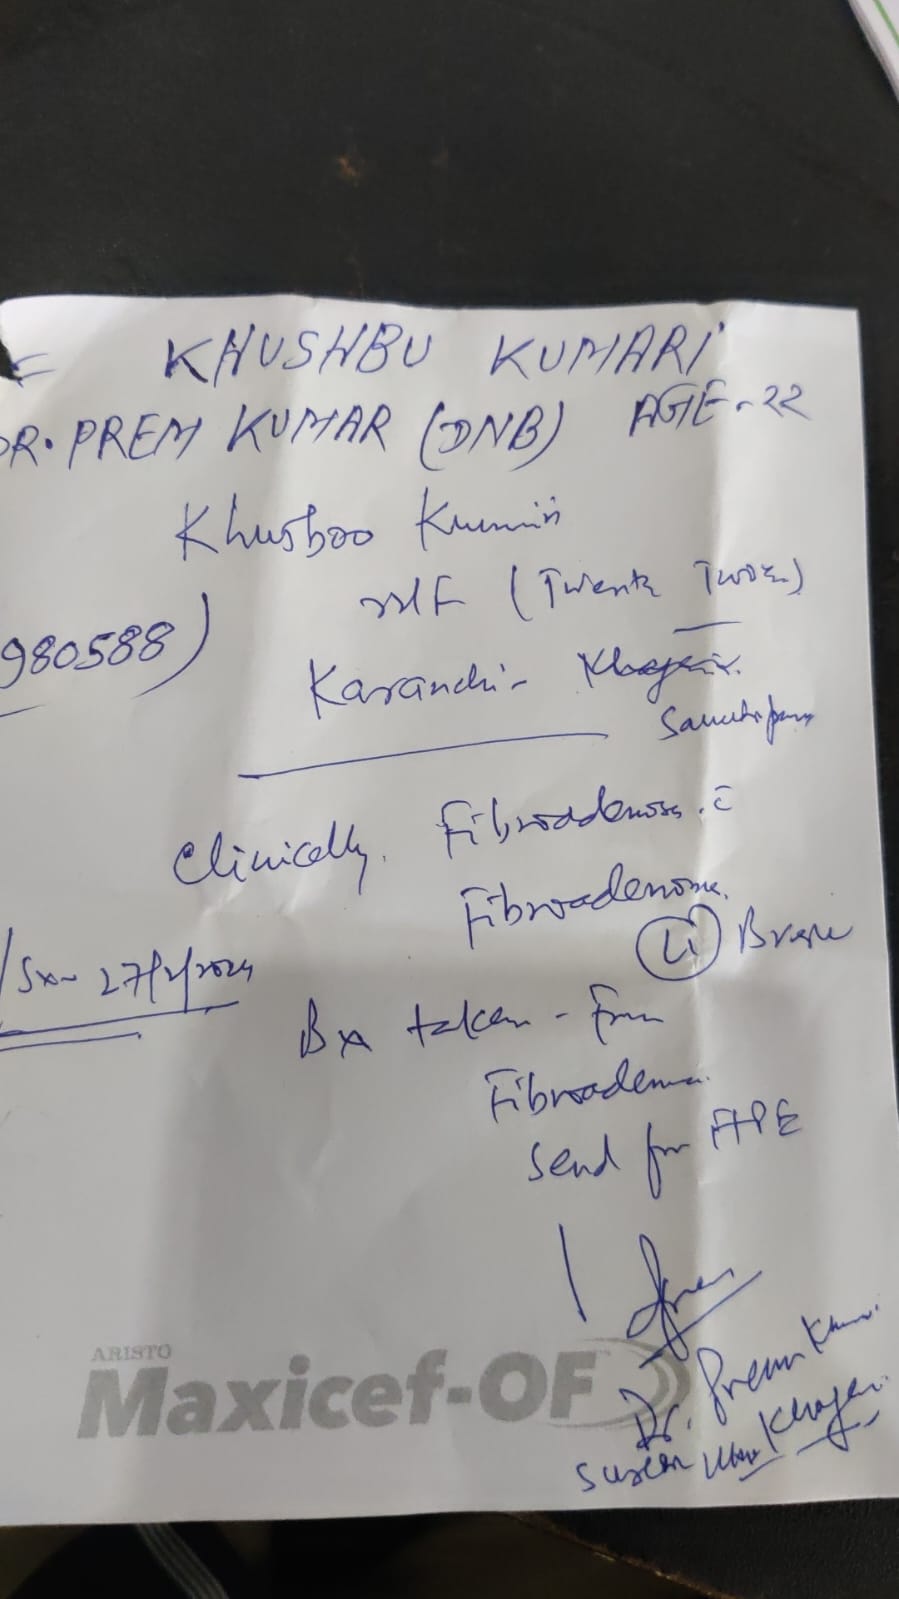 KHUSHBU KUMARI
DR. PREM KUMAR (DNB) AGE-22
Khusboo Kumari
22/F (Twenty Two)
980588)
Karanchi-
Clinically. Fibroadenosis. c̄
Fibroadenoma.
Lt Breast
Sx- 27/2/2024
Bx taken - From
Fibroadenoma.
Send for HPE
Dr. Prem Kumar
ARISTO
Maxicef-OF